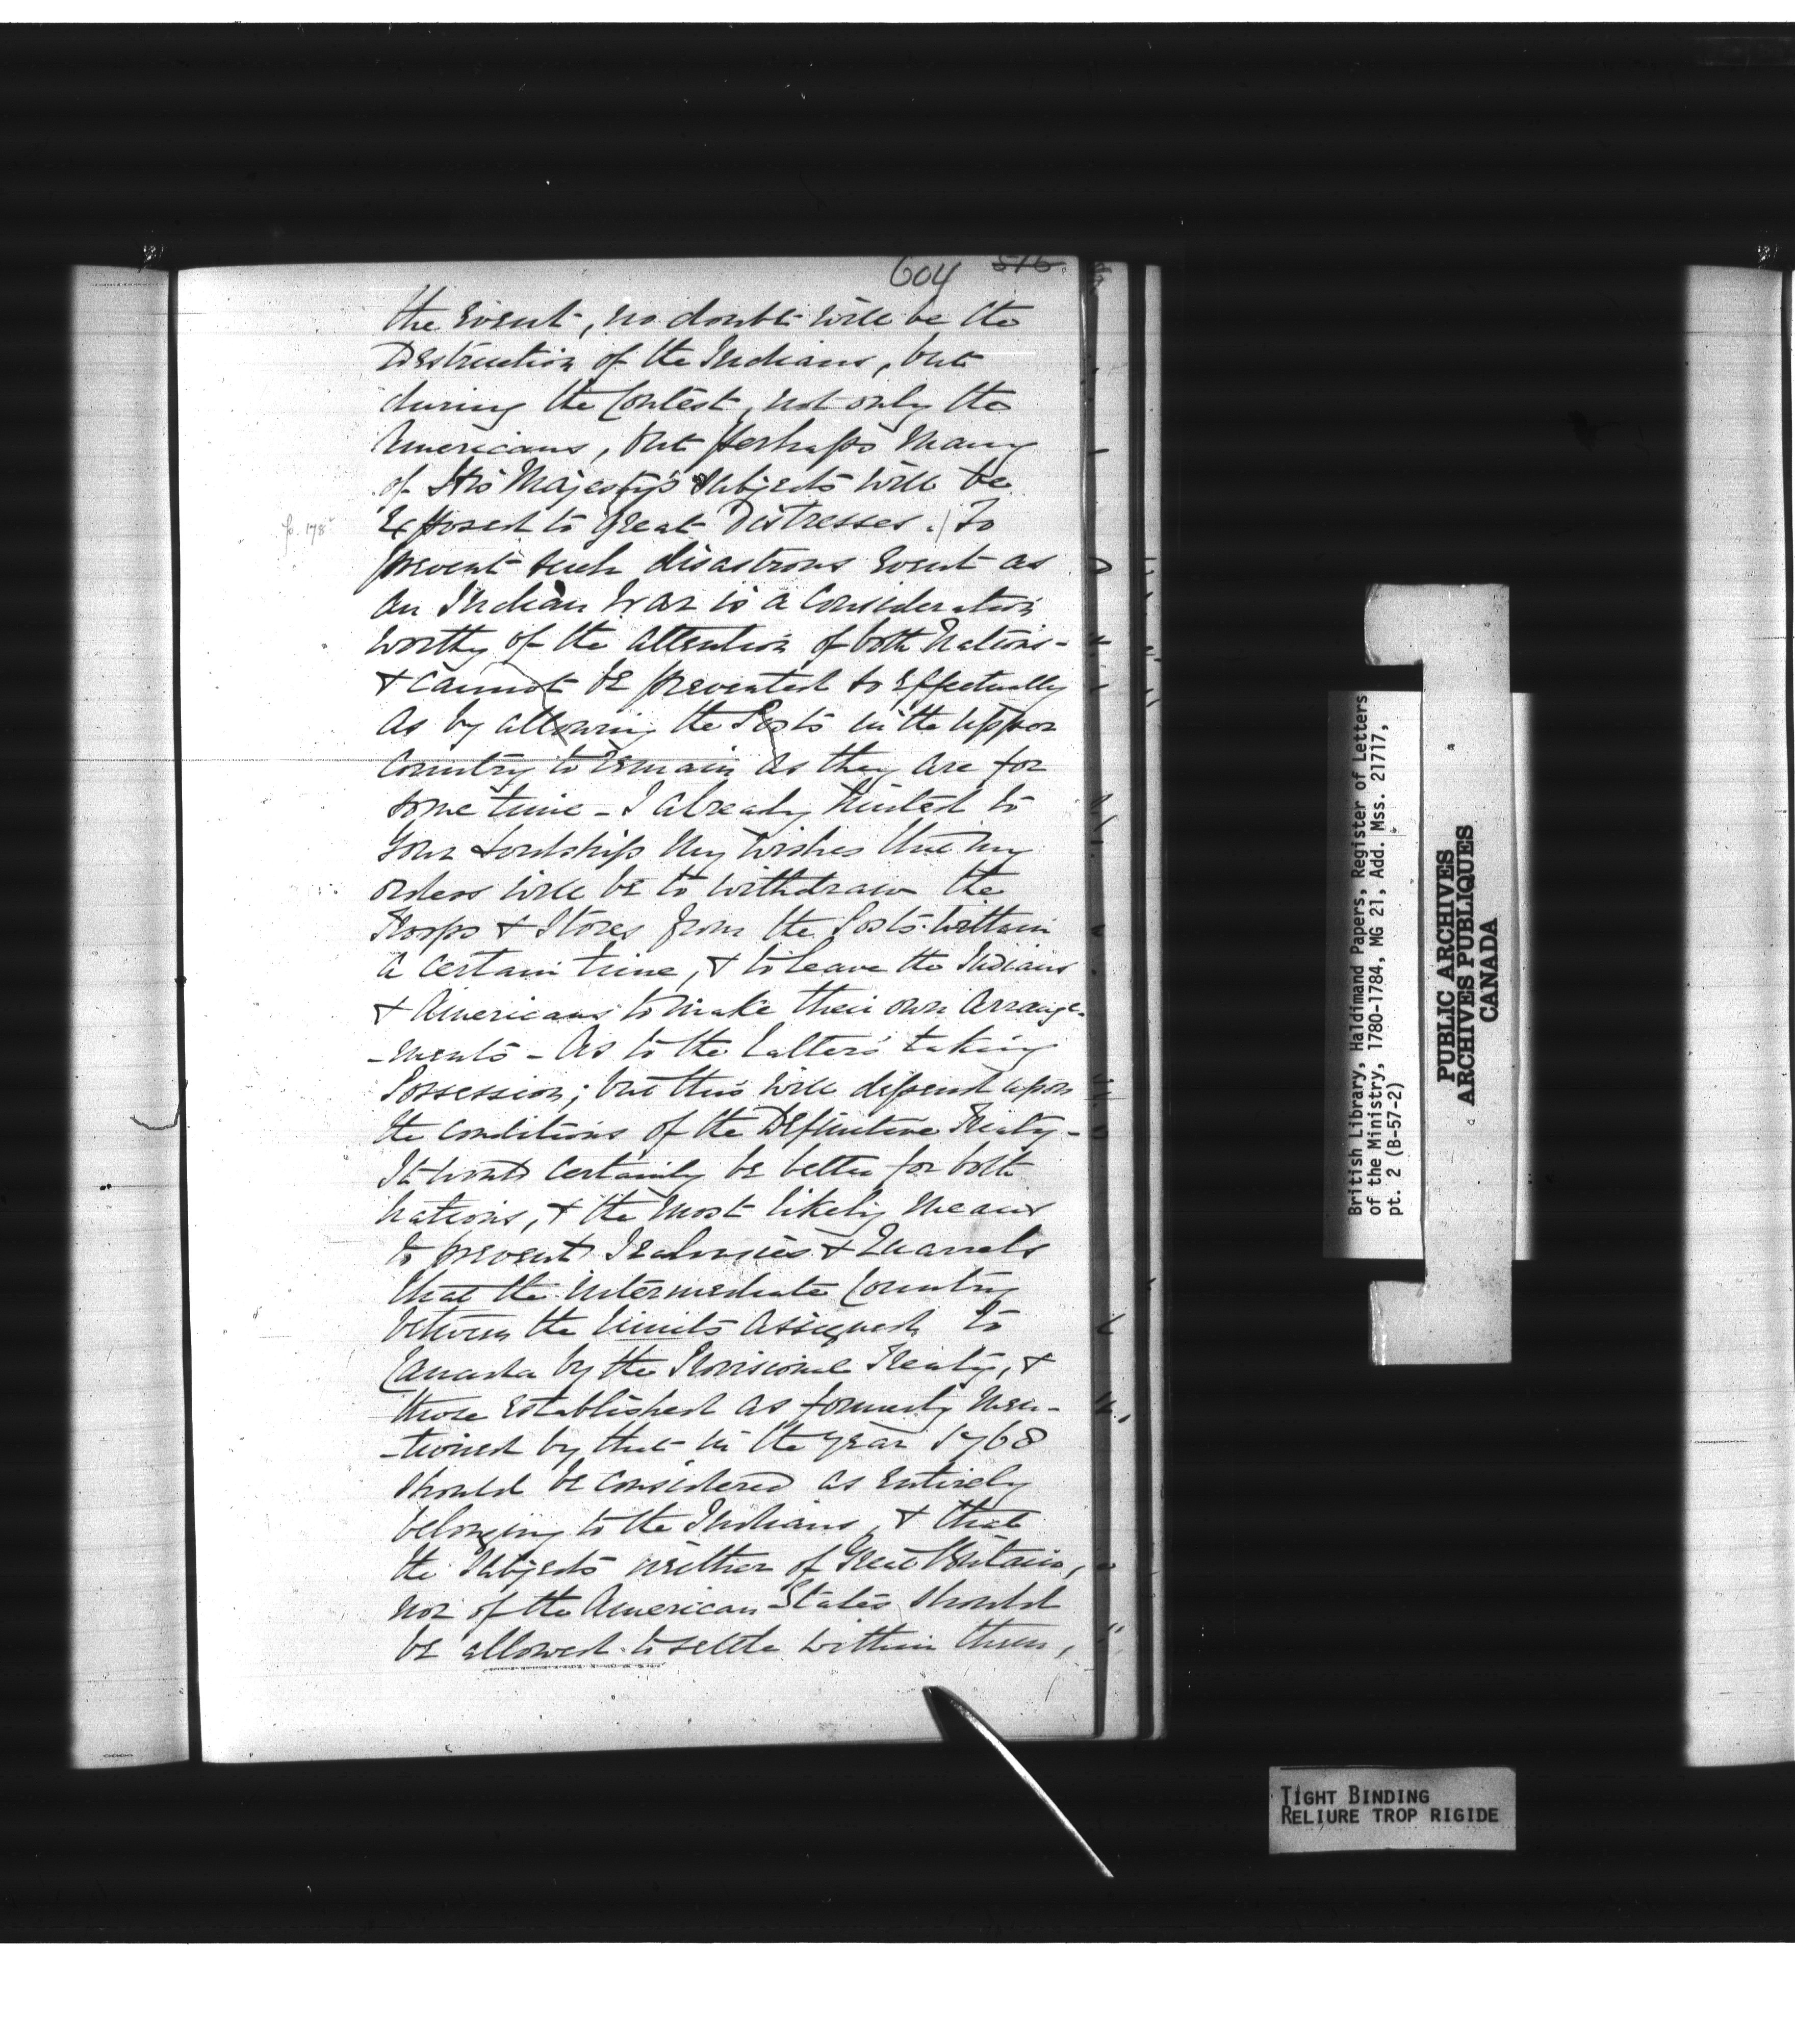 604 516.
the Event, no doubt will be the
Destruction of the Indians, but
during the Contest, not only the
Americans, but perhaps Many
of His Majesty's Subjects will be
p. 178
Exposed to Great Distresses. / To
prevent such disastrous Event as
an Indian War is a Consideration
worthy of the attention of both Nations -
& Cannot be prevented so Effectually
as by allowing the Posts in the Upper
Country to remain as they are for
some time - I already hinted to
Your Lordship My Wishes that my
orders will be to withdraw the
Troops & Stores from the Posts within
a Certain time, & to leave the Indians
& Americans to make their own Arrange-
-ments - As to the Latter's taking
Possession; but this will depend upon
the Conditions of the Definitive Treaty -
It would Certainly be better for both
Nations, & the Most likely Means
to prevent Jealousies & Quarrels
that the intermediate Country
between the limits Assigned to
Canada by the Provisional Treaty, &
those Established as formerly Men-
-tioned by that in the Year 1768
should be Considered as Entirely
belonging to the Indians, & that
the Subjects neither of Great Britain,
nor of the American States should
be allowed to settle within them,
British Library, Haldimand Papers, Register of Letters
of the Ministry, 1780-1784, MG 21, Add. Mss. 21717,
pt. 2 (B-57-2)
PUBLIC ARCHIVES
ARCHIVES PUBLIQUES
CANADA
TIGHT BINDING
RELIURE TROP RIGIDE